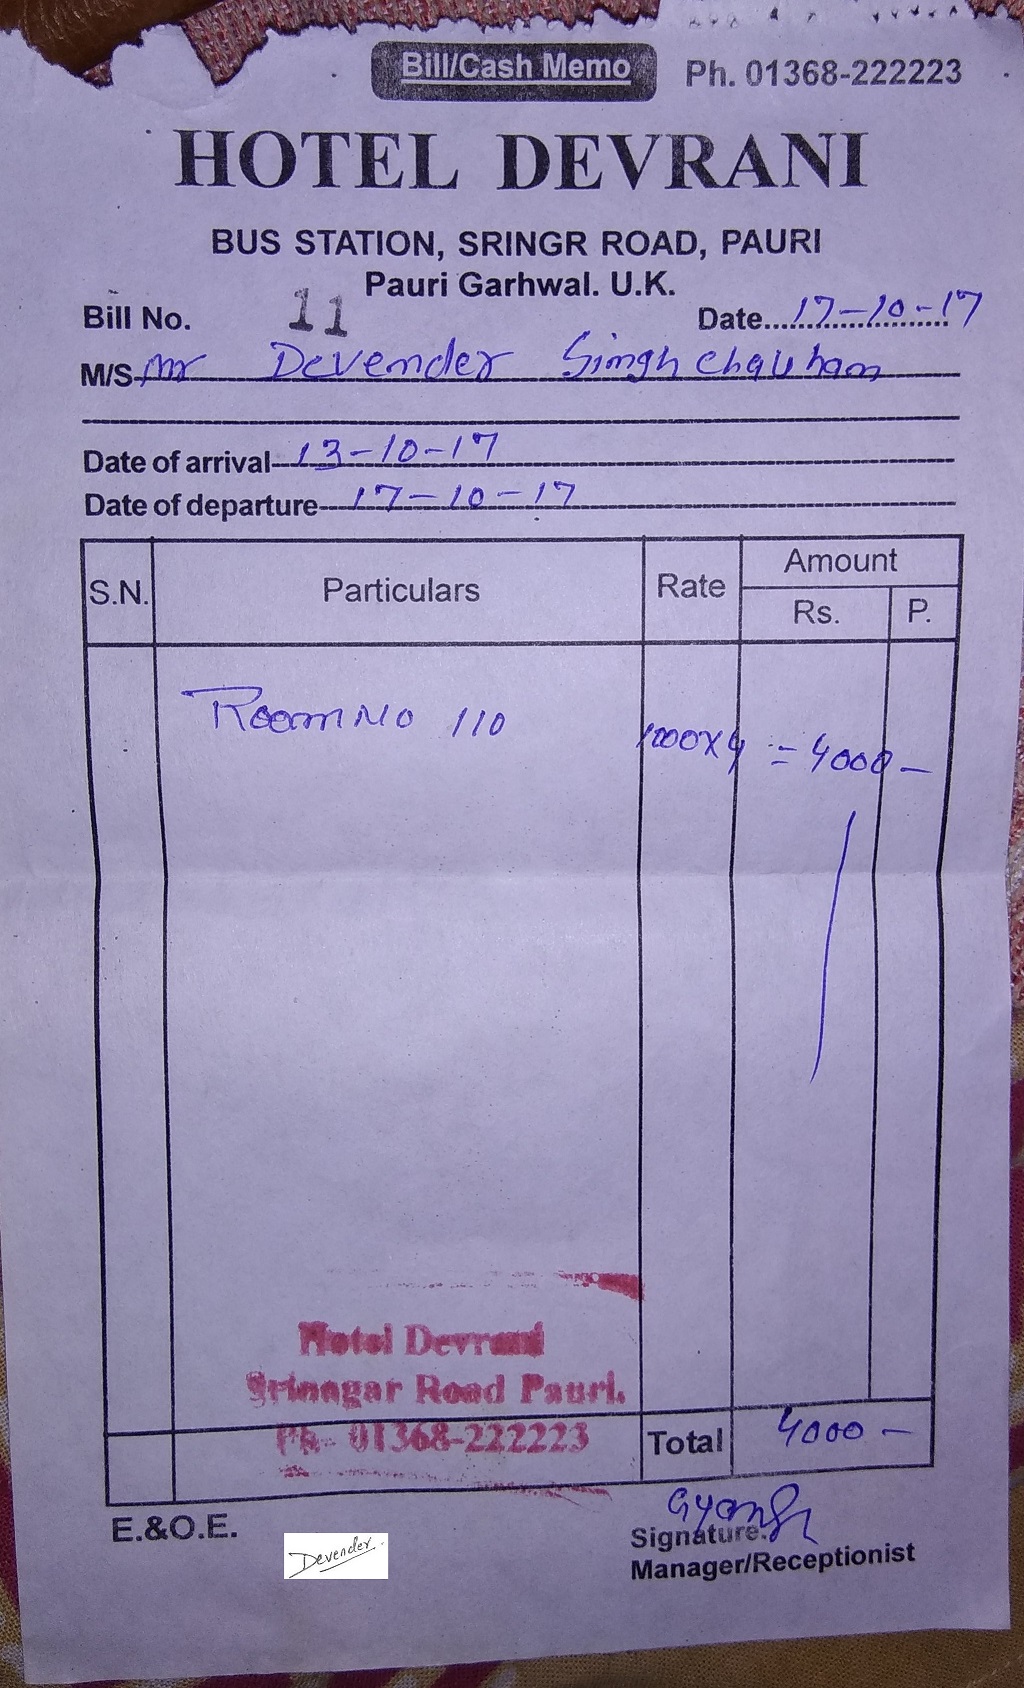 Bill/Cash Memo Ph. 01368-222223
HOTEL DEVRANI
BUS STATION, SRINGR ROAD, PAURI
Pauri Garhwal. U.K.
Bill No. 11 Date 17-10-17
M/S Mr Devender Singh Chauhan
Date of arrival 13-10-17
Date of departure 17-10-17
S.N. Particulars Rate Amount
Rs. P.
Room No 110 1000X4 = 4000 -
Hotel Devrani
Srinagar Road Pauri.
Ph- 01368-222223
Total 4000 -
E.&O.E.
Devender
Signature.
Manager/Receptionist